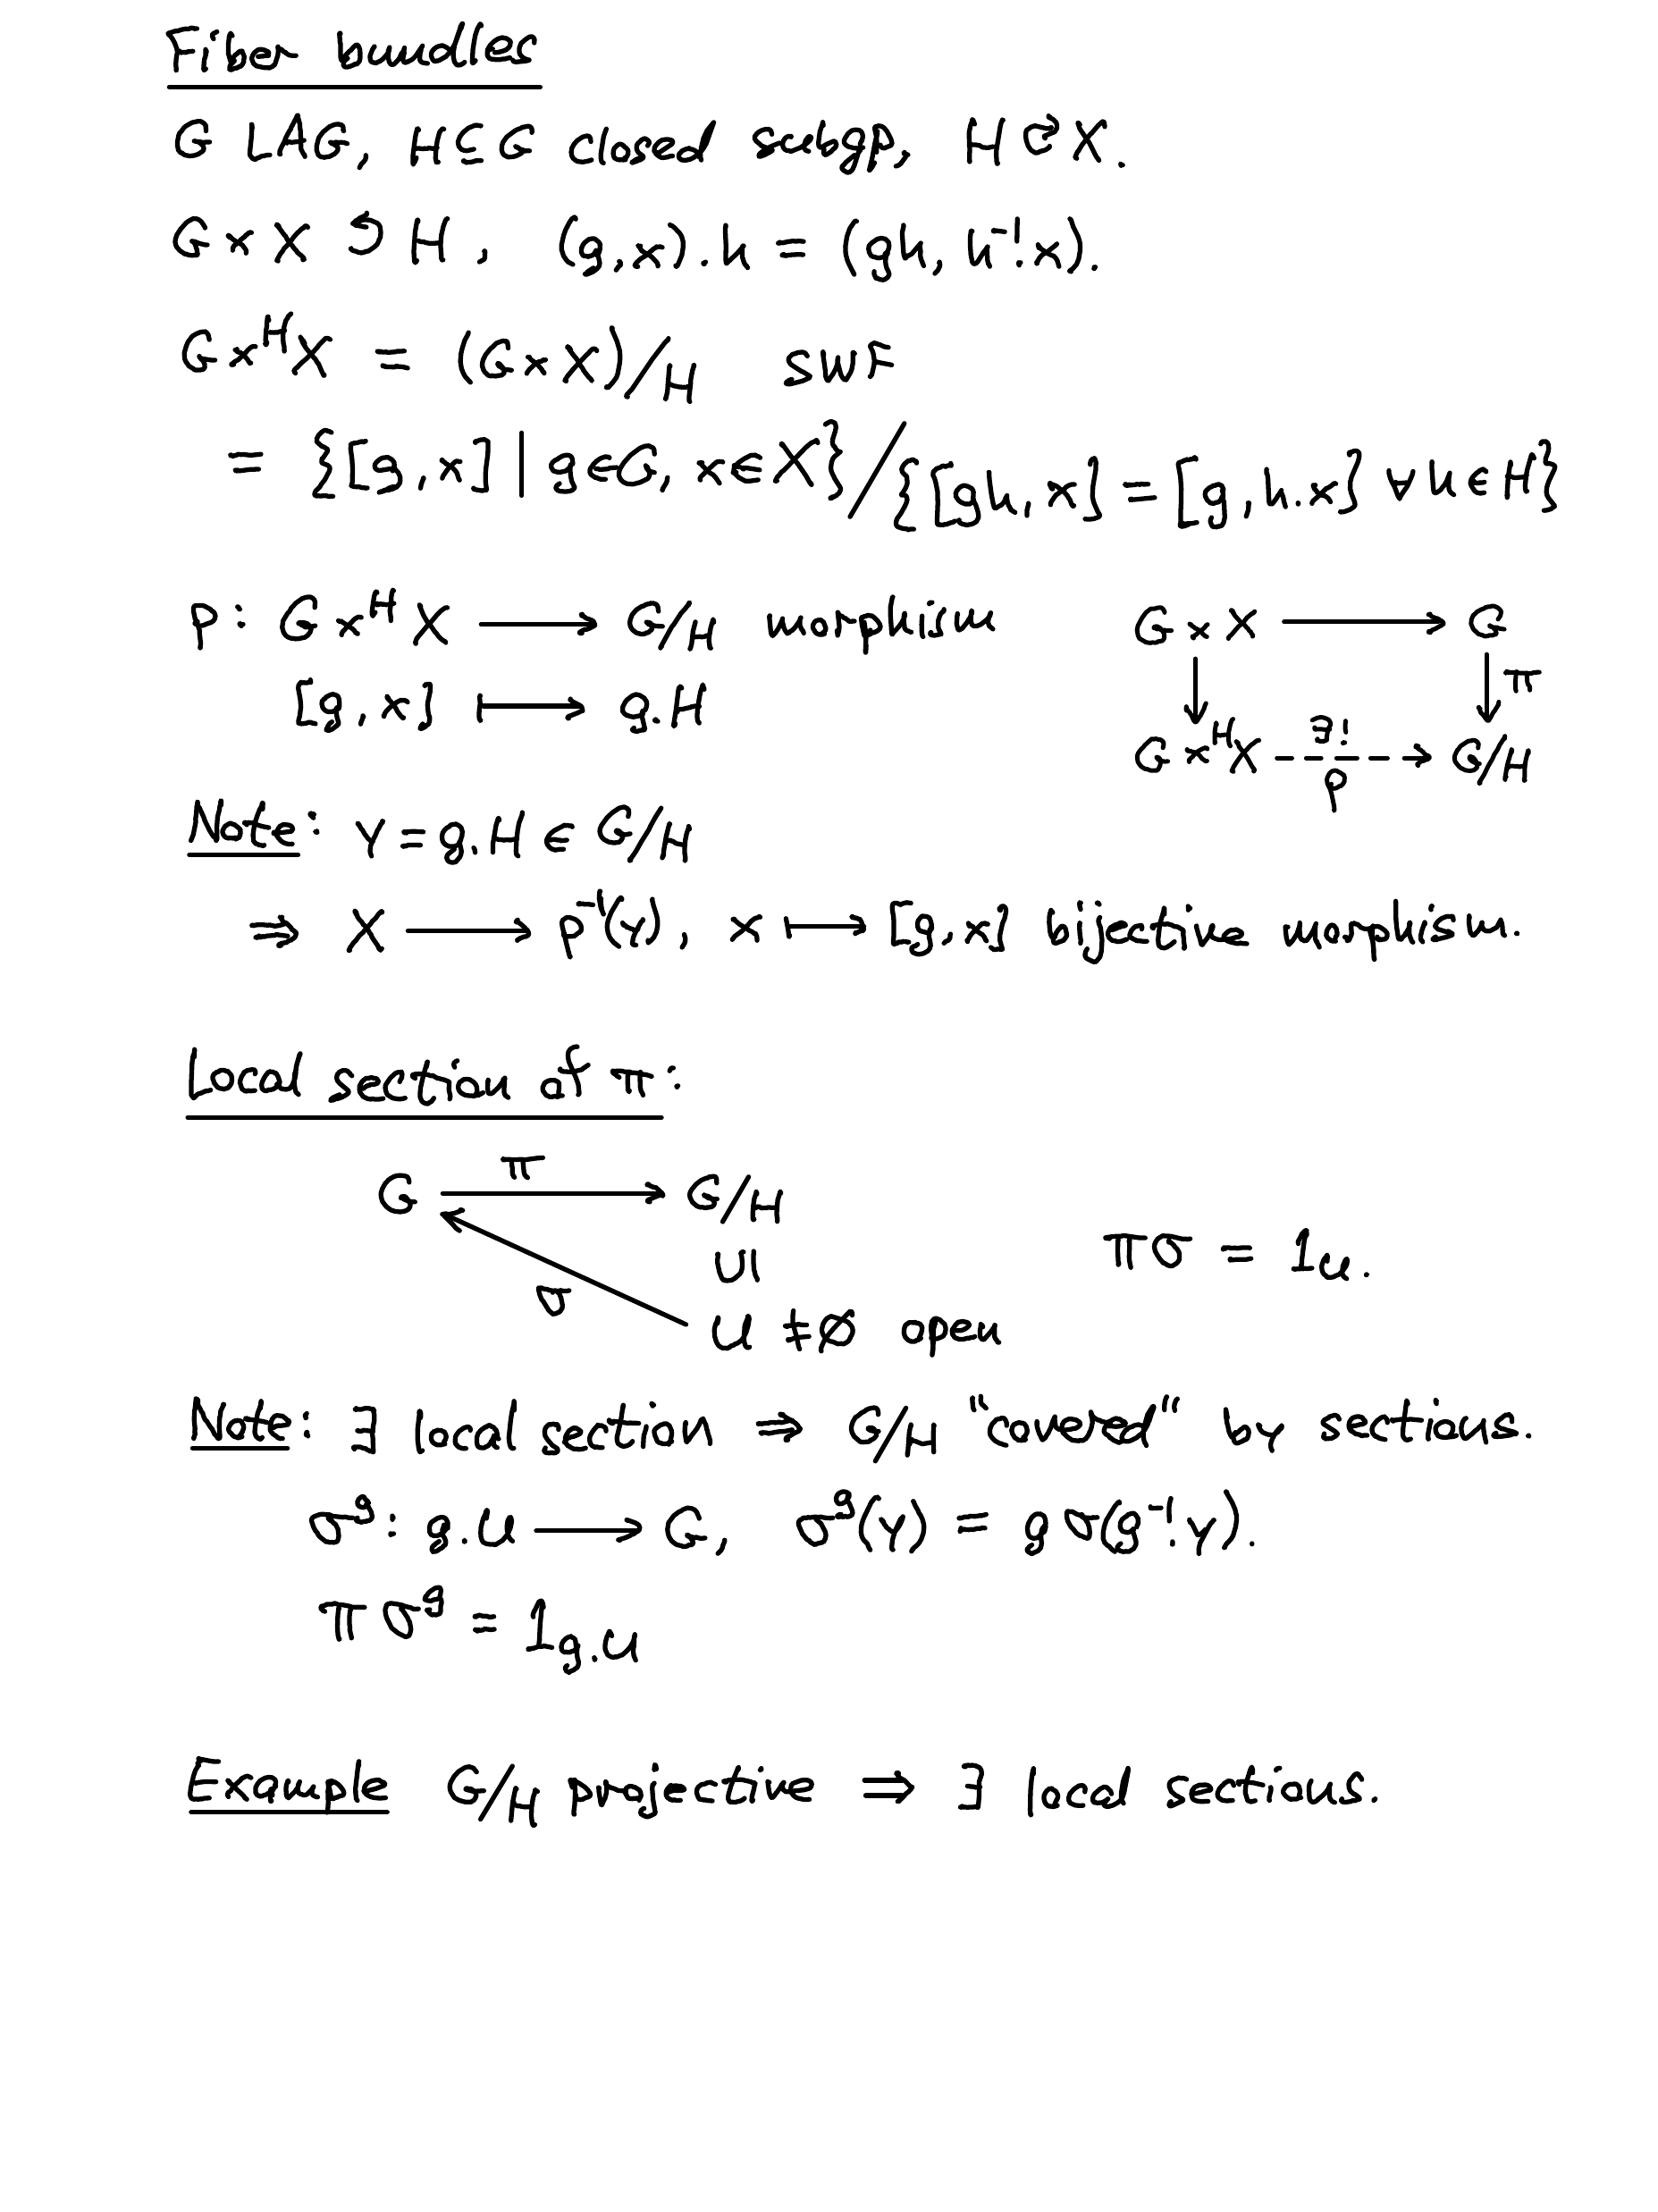 Fiber bundles
G LAG, H ⊆ G closed subgp, H ↻ X.
G × X ↺ H, (g,x).h = (gh, h⁻¹.x).
G ×ᴴ X = (G × X)/H SWF
= {[g,x] | g ∈ G, x ∈ X}/{[gh,x] = [g,h.x] ∀ h ∈ H}
p: G ×ᴴ X ⟶ G/H morphism
[g,x] ⟼ g.H
G × X ⟶ G
↓ ↓ π
G ×ᴴ X ⇢ G/H
∃!
p
Note: y = g.H ∈ G/H
⇒ X ⟶ p⁻¹(y), x ⟼ [g,x] bijective morphism.
Local section of π:
π
G ⟶ G/H
∪|
σ
U ≠ ∅ open
πσ = 1_U.
Note: ∃ local section ⇒ G/H "covered" by sections.
σᵍ: g.U ⟶ G, σᵍ(y) = g σ(g⁻¹.y).
π σᵍ = 1_{g.U}
Example G/H projective ⇒ ∃ local sections.